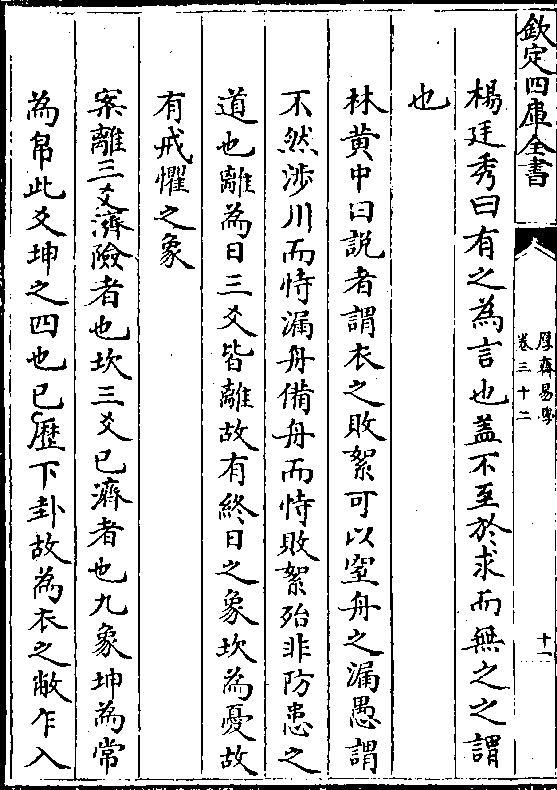 欽定四庫全書
厚齋易學
卷三十二
十一
楊廷秀曰有之為言也蓋不至於求而無之之謂
也
林黄中曰説者謂衣之敗絮可以窒舟之漏愚謂
不然渉川而恃漏舟備舟而恃敗絮殆非防患之
道也離為日三爻皆離故有終日之象坎為憂故
有戒懼之象
案離三爻濟險者也坎三爻已濟者也九象坤為常
為帛此爻坤之四也已歷下卦故為衣之敝乍入